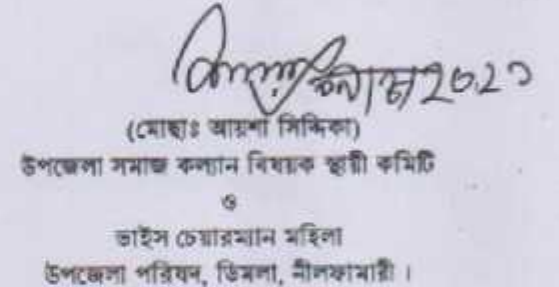 (মোছাঃ আয়শা সিদ্দিকা)
উপজেলা সমাজ কল্যান বিষয়ক স্থায়ী কমিটি
ও
ভাইস চেয়ারম্যান মহিলা
উপজেলা পরিষদ, ডিমলা, নীলফামারী ।